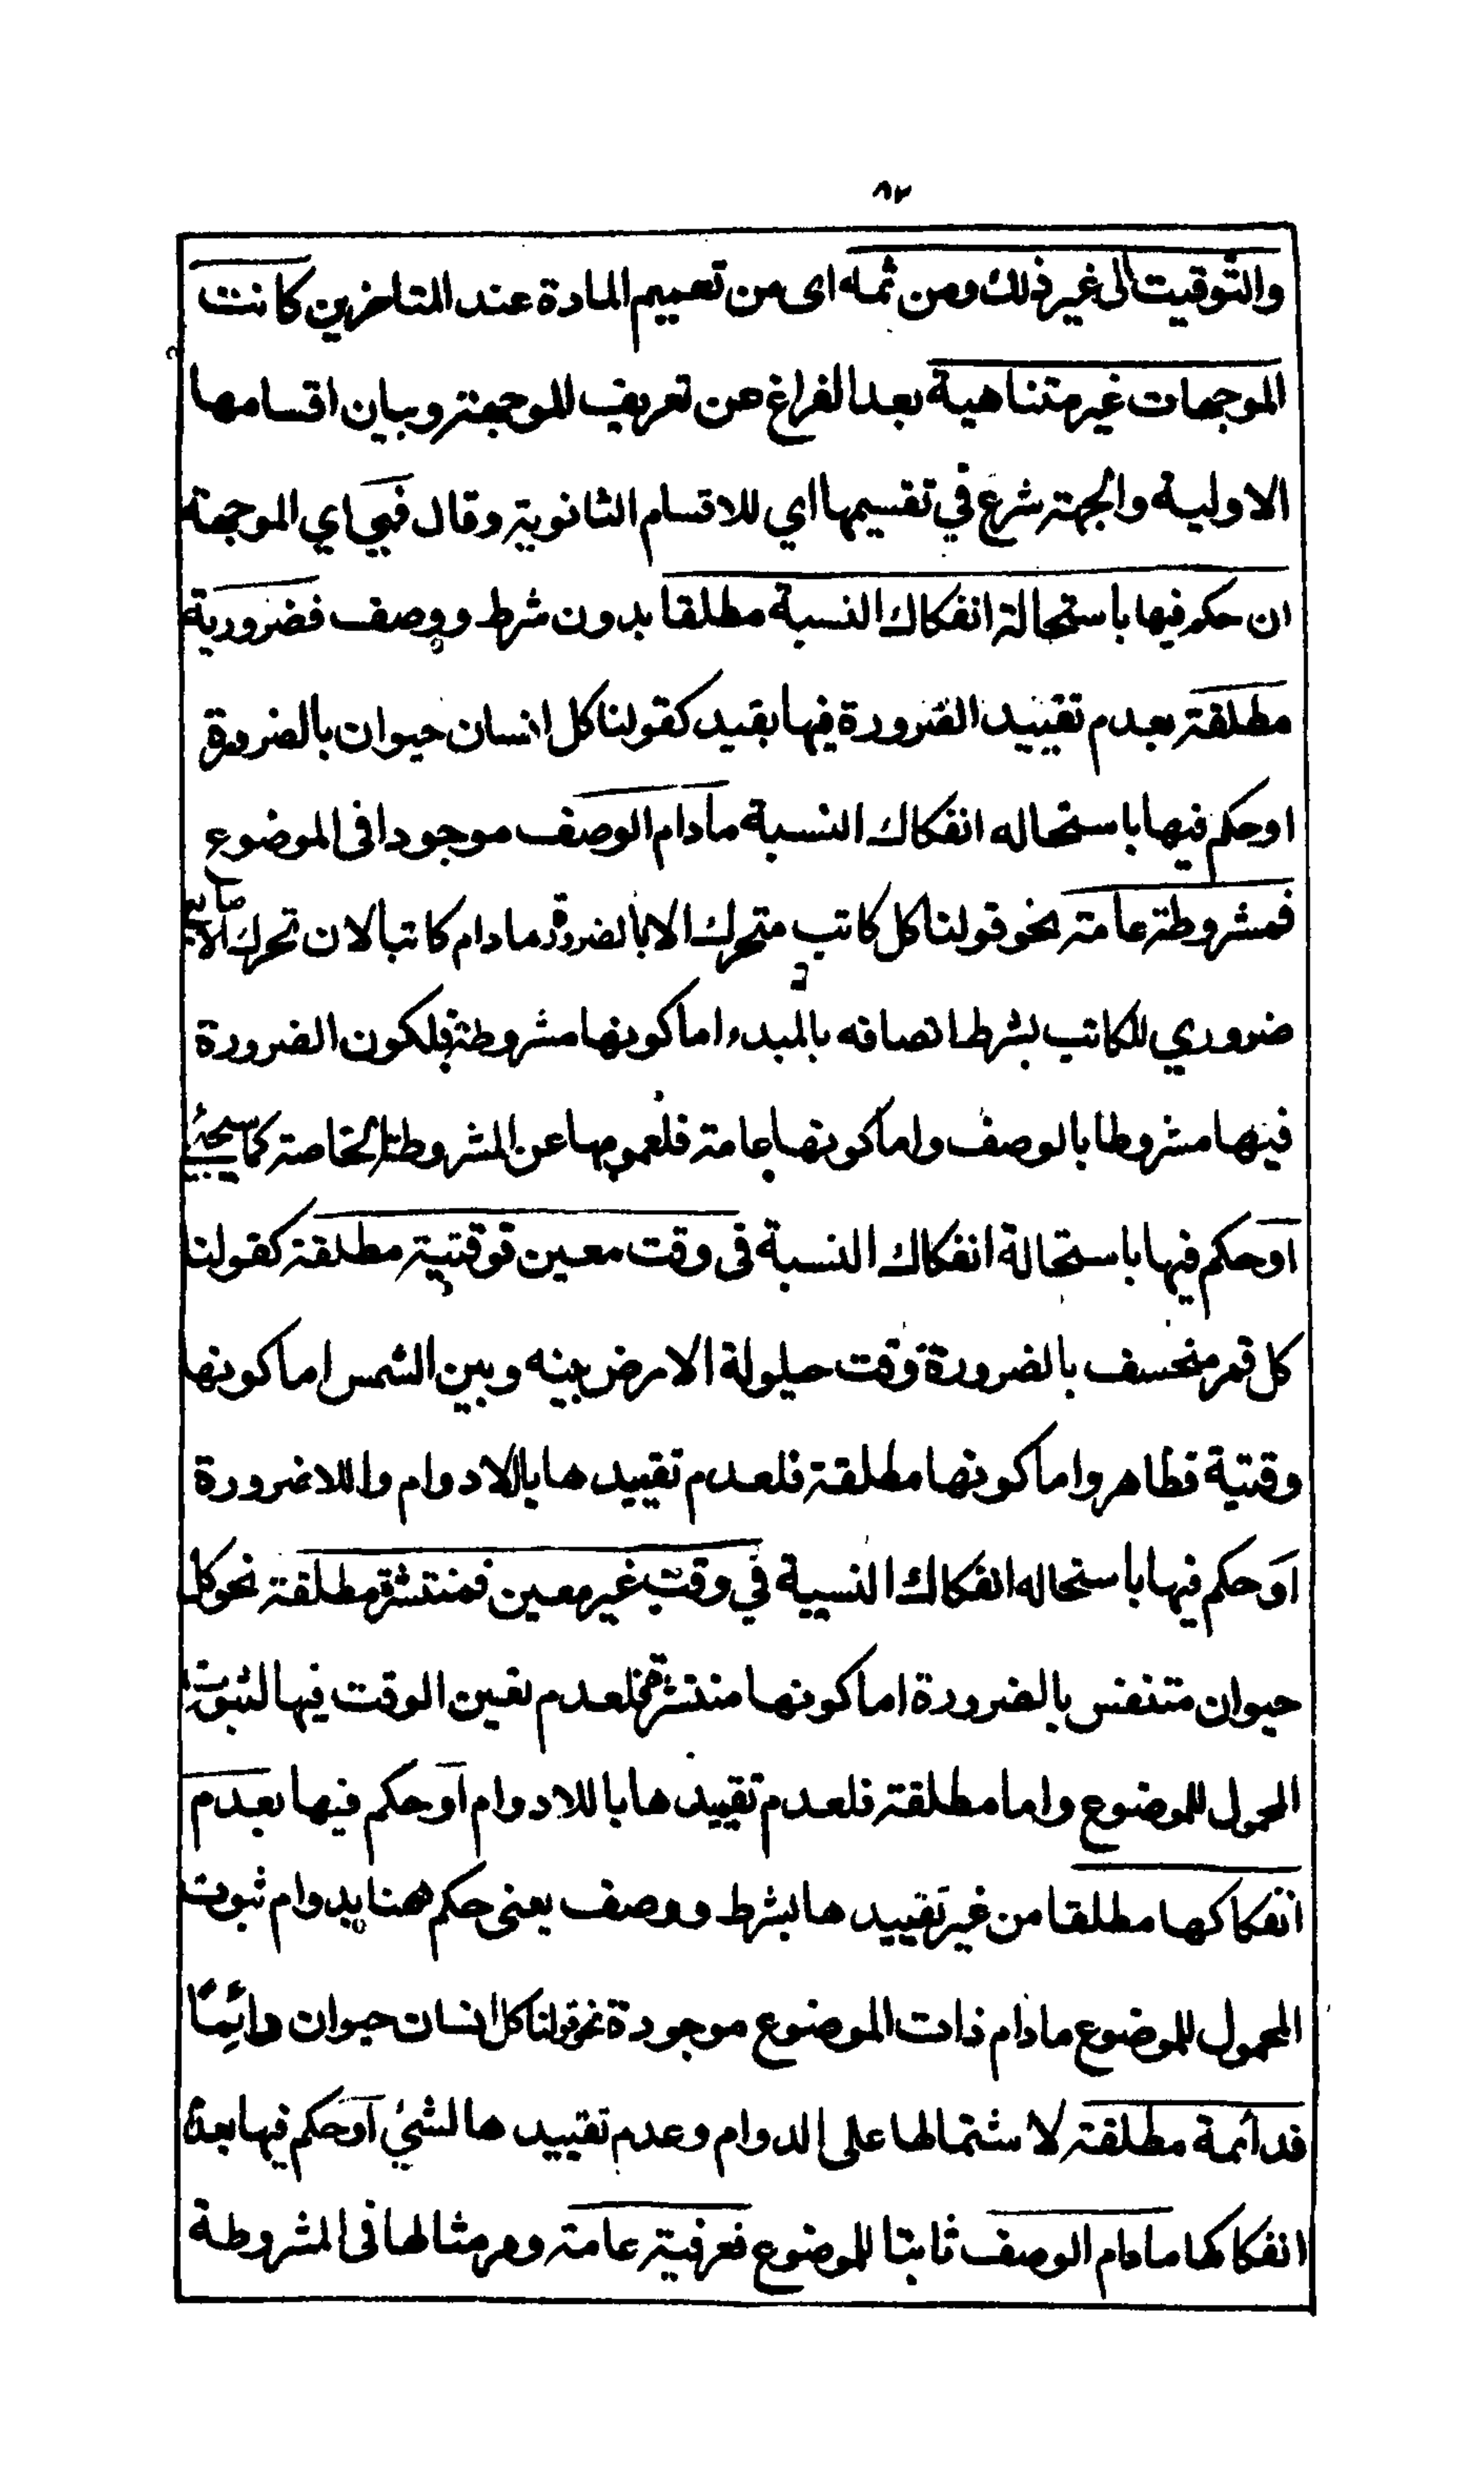 ٨٢
والتوقيت الى غير ذلك ومن ثمه اى من تعميم المادة عند المتاخرين كانت
الموجهات غير متناهية بعد الفراغ عن تعريف الموجهة وبيان اقسامها
الاولية والجهة شرع في تقسيمها اي للاقسام الثانوية وقال فهي اي الموجهة
ان حكم فيها باستحالة انفكاك النسبة مطلقا بدون شرط ووصف فضرورية
مطلقة بعدم تقييد الضرورة فيها بقيد كقولنا كل انسان حيوان بالضرورة
اوحكم فيها باستحاله انفكاك النسبة مادام الوصف موجودا فى الموضوع
فمشروطة عامة نحو قولنا كل كاتب متحرك الا بالضرورة مادام كاتبا لان تحرك الاصابع
ضروري للكاتب بشرط اتصافه بالمبدء اما كونها مشروطة فلكون الضرورة
فيها مشروطا بالوصف واما كونها عامة فلعمومها عن المشروطة الخاصة كما سيجئ
اوحكم فيها باستحالة انفكاك النسبة فى وقت معين فوقتية مطلقة كقولنا
كل قمر منخسف بالضرورة وقت حيلولة الارض بينه وبين الشمس اما كونها
وقتية فظاهر واما كونها مطلقة فلعدم تقييدها باللادوام واللاضرورة
اوحكم فيها باستحاله انفكاك النسبة في وقت غير معين فمنتشرة مطلقة نحو كل
حيوان متنفس بالضرورة اما كونها منتشرة فلعدم تعين الوقت فيها لثبوت
المحمول للموضوع واما مطلقة فلعدم تقييدها باللادوام اوحكم فيها بعدم
انفكاكها مطلقا من غير تقييدها بشرط ووصف يعنى حكم ههنا بدوام ثبوت
المحمول للموضوع مادام ذات الموضوع موجودة نحو قولنا كل انسان حيوان دائمًا
فدائمة مطلقة لاشتمالها على الدوام وعدم تقييدها لشيئ اوحكم فيها بعدم
انفكاكها مادام الوصف ثابتا للموضوع فعرفية عامة ومر مثالها فى المشروطة